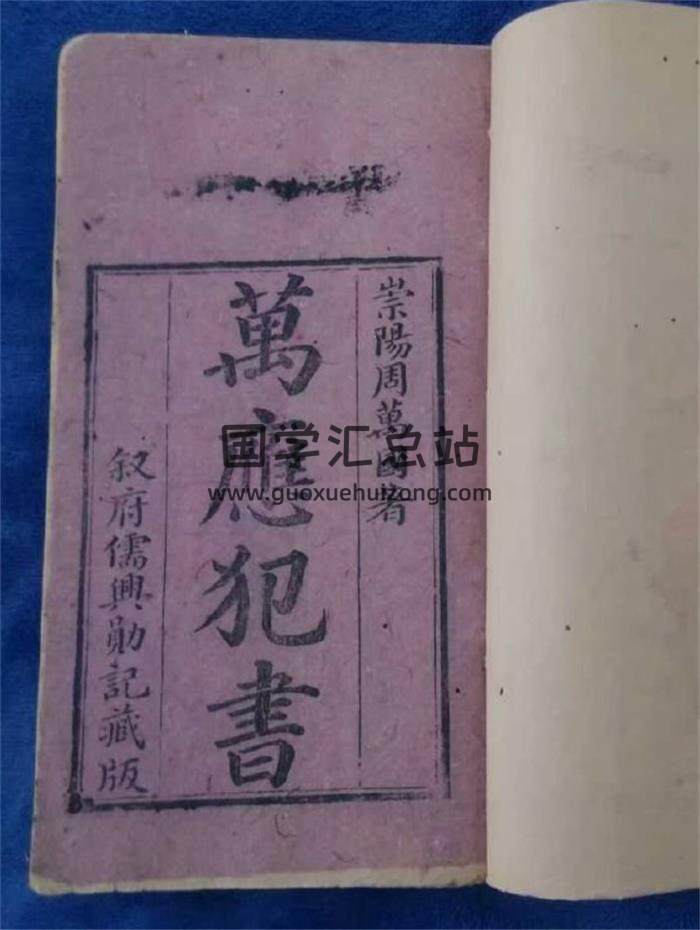 崇陽周萬國著
萬應犯書
叙府儒興勛記藏版
国学汇总站
www.guoxuehuizong.com